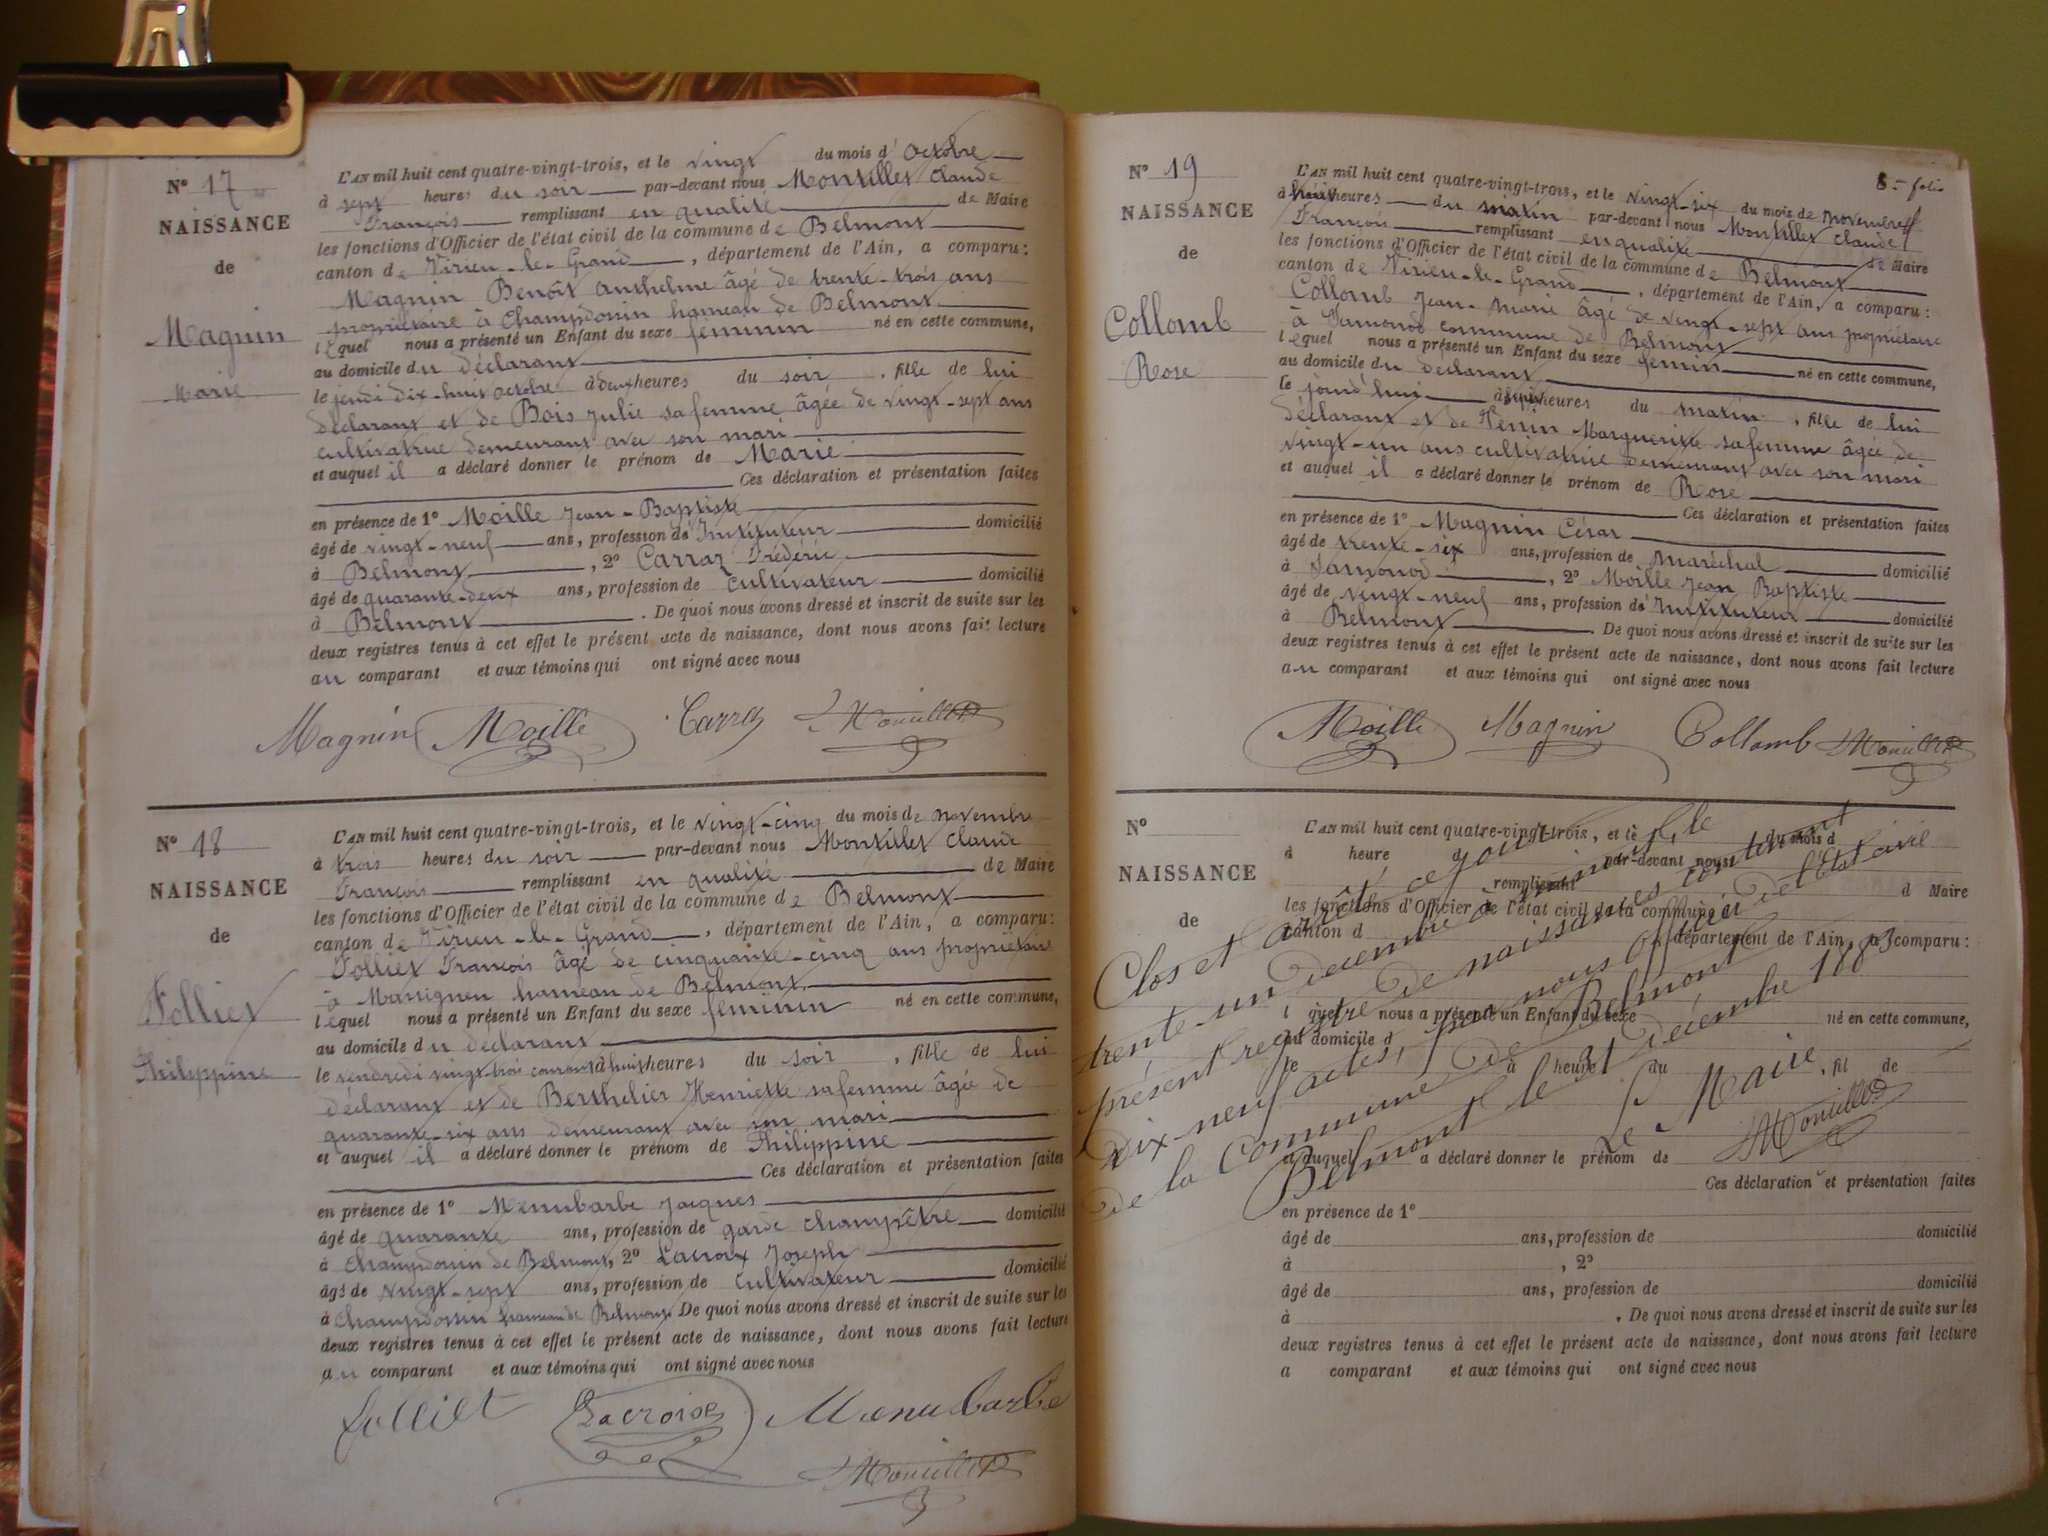 N° 17
NAISSANCE
de
Magnin
Marie
L'AN mil huit cent quatre-vingt-trois, et le vingt du mois d'octobre
à sept heures du soir par-devant nous Montillet Claude
François remplissant en qualité de Maire
les fonctions d'Officier de l'état civil de la commune de Belmont
canton de Virieu-le-Grand, département de l'Ain, a comparu:
Magnin Benoît Anthelme âgé de trente-trois ans
propriétaire à Champdossin hameau de Belmont
lequel nous a présenté un Enfant du sexe féminin né en cette commune,
au domicile du déclarant
le jeudi dix-huit octobre à deux heures du soir, fille de lui
déclarant et de Bois Julie sa femme âgée de vingt-sept ans
cultivatrice demeurant avec son mari
et auquel il a déclaré donner le prénom de Marie
Ces déclaration et présentation faites
en présence de 1° Moille Jean-Baptiste
âgé de vingt-neuf ans, profession d'Instituteur domicilié
à Belmont, 2° Carraz Frédéric
âgé de quarante-deux ans, profession de cultivateur domicilié
à Belmont. De quoi nous avons dressé et inscrit de suite sur les
deux registres tenus à cet effet le présent acte de naissance, dont nous avons fait lecture
au comparant et aux témoins qui ont signé avec nous
Magnin Moille Carraz Montillet
N° 18
NAISSANCE
de
Folliet
Philippine
L'AN mil huit cent quatre-vingt-trois, et le vingt-cinq du mois de novembre
à trois heures du soir par-devant nous Montillet Claude
François remplissant en qualité de Maire
les fonctions d'Officier de l'état civil de la commune de Belmont
canton de Virieu-le-Grand, département de l'Ain, a comparu:
Folliet François âgé de cinquante-cinq ans propriétaire
à Massignieu hameau de Belmont
lequel nous a présenté un Enfant du sexe féminin né en cette commune,
au domicile du déclarant
le vendredi vingt-trois courant à huit heures du soir, fille de lui
déclarant et de Berthelier Henriette sa femme âgée de
quarante-six ans demeurant avec son mari
et auquel il a déclaré donner le prénom de Philippine
Ces déclaration et présentation faites
en présence de 1° Menubarbe Jacques
âgé de quarante ans, profession de garde champêtre domicilié
à Champdossin de Belmont, 2° Lacroix Joseph
âgé de vingt-sept ans, profession de cultivateur domicilié
à Champdossin hameau de Belmont. De quoi nous avons dressé et inscrit de suite sur les
deux registres tenus à cet effet le présent acte de naissance, dont nous avons fait lecture
au comparant et aux témoins qui ont signé avec nous
Folliet Lacroix Menubarbe
Montillet
8e folio
N° 19
NAISSANCE
de
Collomb
Rose
L'AN mil huit cent quatre-vingt-trois, et le vingt-six du mois de novembre
à huit heures du matin par-devant nous Montillet Claude
François remplissant en qualité de Maire
les fonctions d'Officier de l'état civil de la commune de Belmont
canton de Virieu-le-Grand, département de l'Ain, a comparu:
Collomb Jean-Marie âgé de vingt-sept ans propriétaire
à Samonod commune de Belmont
lequel nous a présenté un Enfant du sexe féminin né en cette commune,
au domicile du déclarant
le jourd'hui à heures du matin, fille de lui
déclarant et de Marguerite sa femme âgée de
vingt-un ans cultivatrice demeurant avec son mari
et auquel il a déclaré donner le prénom de Rose
Ces déclaration et présentation faites
en présence de 1° Magnin César
âgé de trente-six ans, profession de maréchal domicilié
à Samonod, 2° Moille Jean Baptiste
âgé de vingt-neuf ans, profession d'Instituteur domicilié
à Belmont. De quoi nous avons dressé et inscrit de suite sur les
deux registres tenus à cet effet le présent acte de naissance, dont nous avons fait lecture
au comparant et aux témoins qui ont signé avec nous
Moille Magnin Collomb Montillet
N°
NAISSANCE
de
L'AN mil huit cent quatre-vingt-trois, et le du mois d
à heure d par-devant nous
remplissant d Maire
les fonctions d'Officier de l'état civil de la commune d
canton d, département de l'Ain, a comparu:
l quel nous a présenté un Enfant du sexe né en cette commune,
au domicile d
le à heure du, fil de
et auquel a déclaré donner le prénom de
Ces déclaration et présentation faites
en présence de 1°
âgé de ans, profession de domicilié
à, 2°
âgé de ans, profession de domicilié
à. De quoi nous avons dressé et inscrit de suite sur les
deux registres tenus à cet effet le présent acte de naissance, dont nous avons fait lecture
a comparant et aux témoins qui ont signé avec nous
Clos et arrêté ce jourd'hui
trente un Décembre à minuit, le
présent registre de naissances contenant
Dix-neuf actes, par nous officier de l'Etat civil
de la Commune de Belmont
Belmont le 31 décembre 1883
Le Maire
Montillet